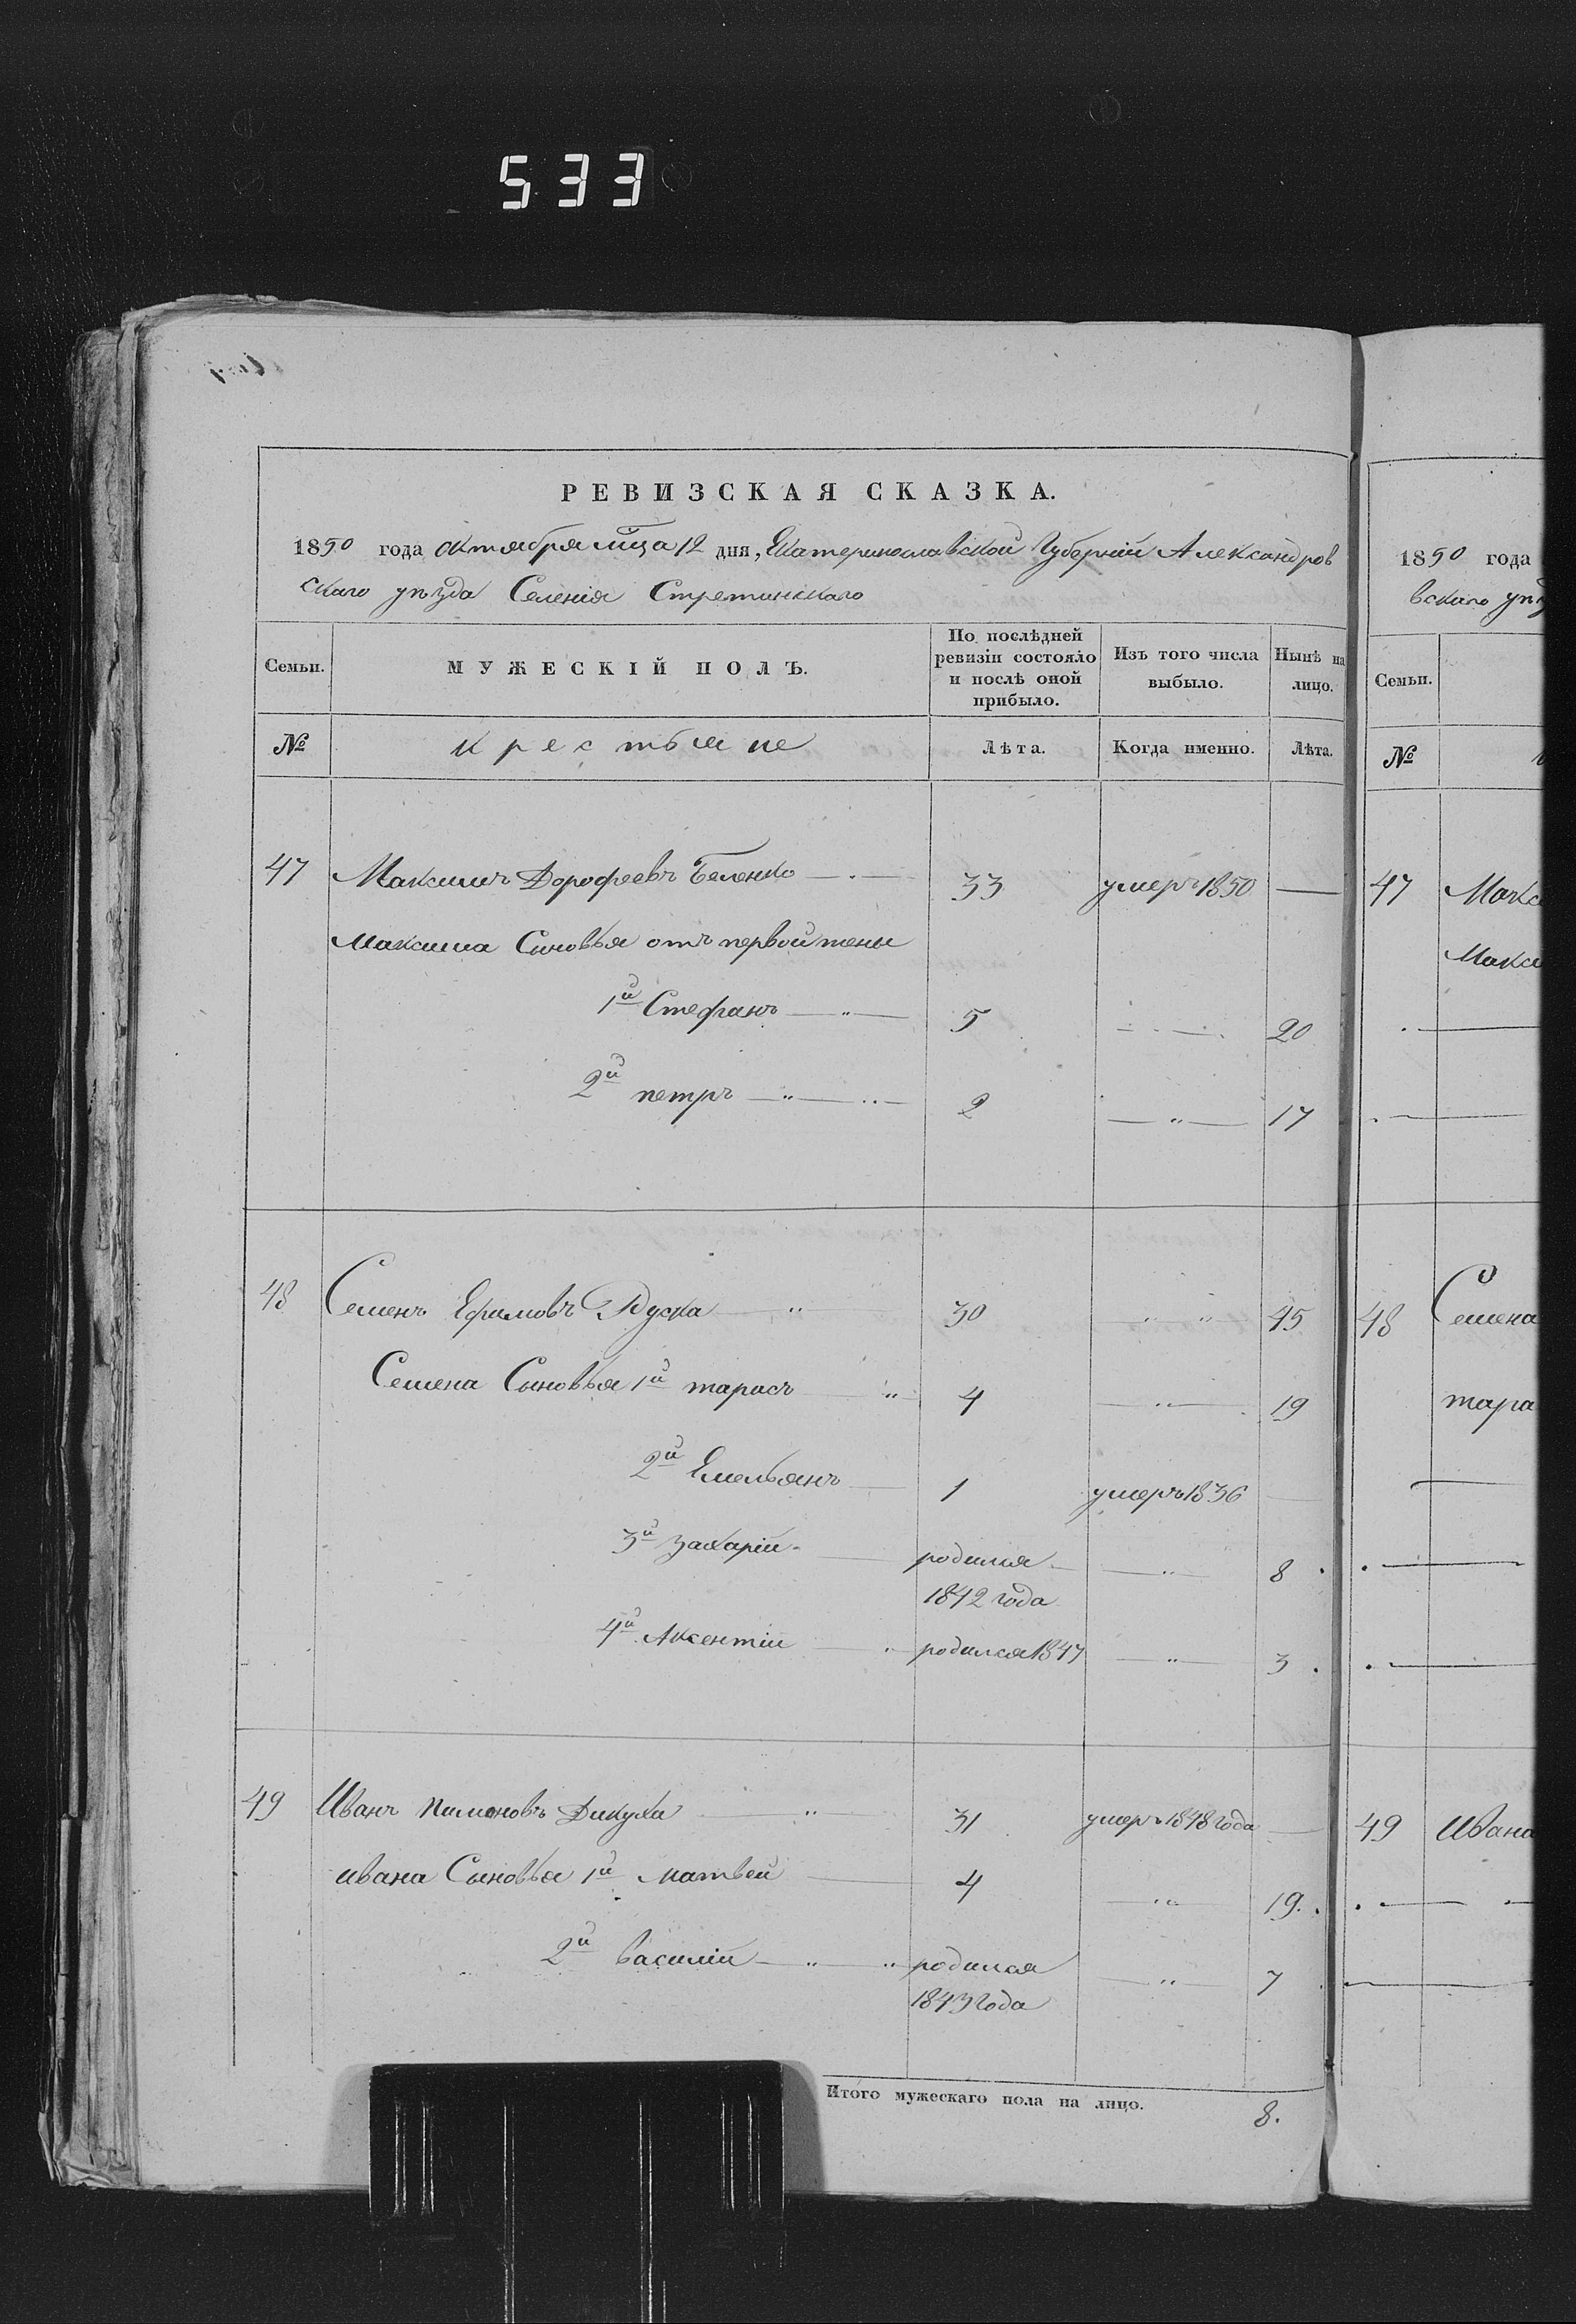 533
РЕВИЗСКАЯ СКАЗКА.
1850 года октября мца 12 дня, Екатеринославской Губерній Александров
скаго уѣзда Селенія Стретинскаго
Семьи.
МУЖЕСКІЙ ПОЛЪ.
По послѣдней ревизіи состояло и послѣ оной прибыло.
Изъ того числа выбыло.
Нынѣ на лицо.
№
крестьяне
Лѣта.
Когда именно.
Лѣта.
47 Максимъ Дорофеевъ Беленко 33 умеръ 1850
Максима Сыновья отъ первой жены
1й Стефанъ 5 20
2й петръ 2 17
48 Семенъ Ефимовъ 30 45
Семена Сыновья 1й тарасъ 4 19
2й Емельянъ 1 умеръ 1836
3й Захарій родился 8
1842 года
4й Аксентій родился 1847 3
49 Иванъ Пимоновъ Дикуха 31 умеръ 1848 года
ивана Сыновья 1й Матвей 4 19
2й василій родился 7
1843 года
Итого мужескаго пола на лицо. 8.
1850 года
вскаго уѣз
Семьи.
№
47 Макси
Макси
48 Семена
тара
49 Ивана